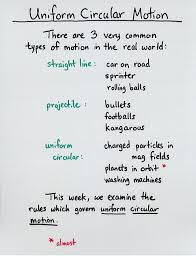 Uniform Circular Motion
There are 3 very common
types of motion in the real world:
straight line: car on road
sprinter
rolling balls
projectile: bullets
footballs
kangarous
uniform
circular: charged particles in
mag fields
planets in orbit *
washing machines
This week, we examine the
rules which govern uniform circular
motion.
* almost